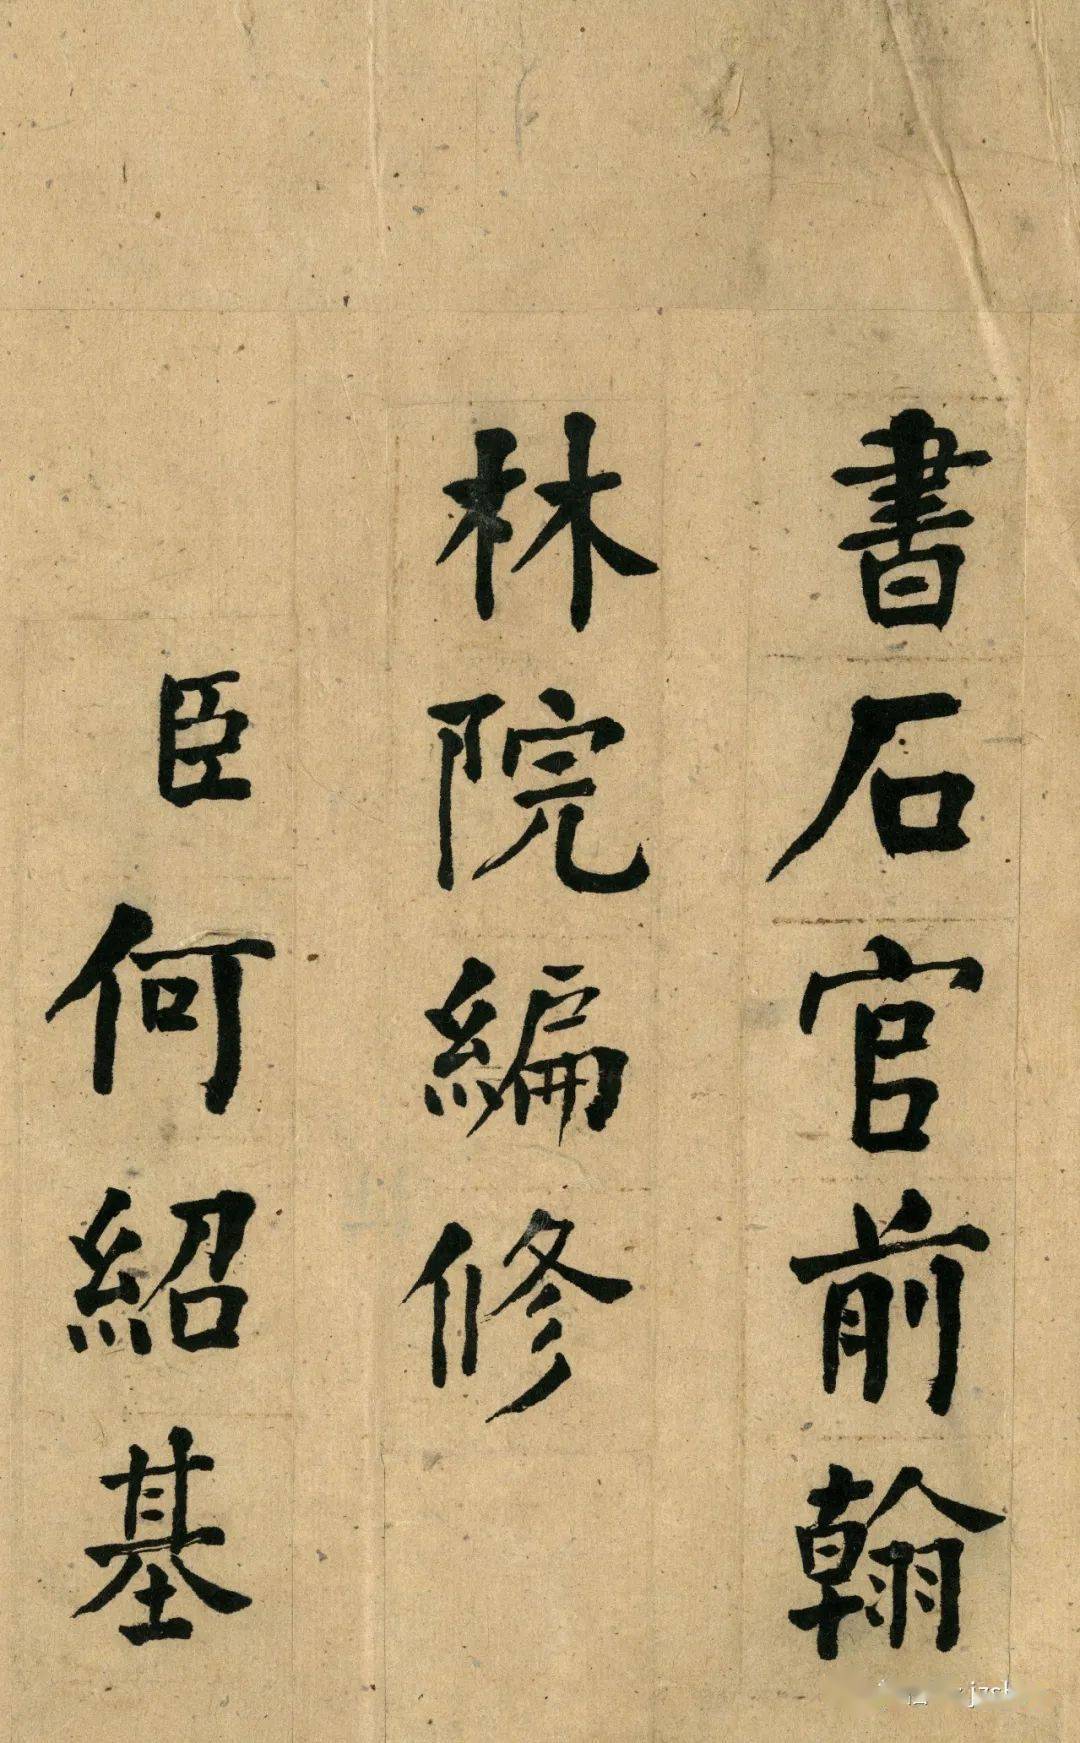 書石官前翰
林院編修
臣何紹基